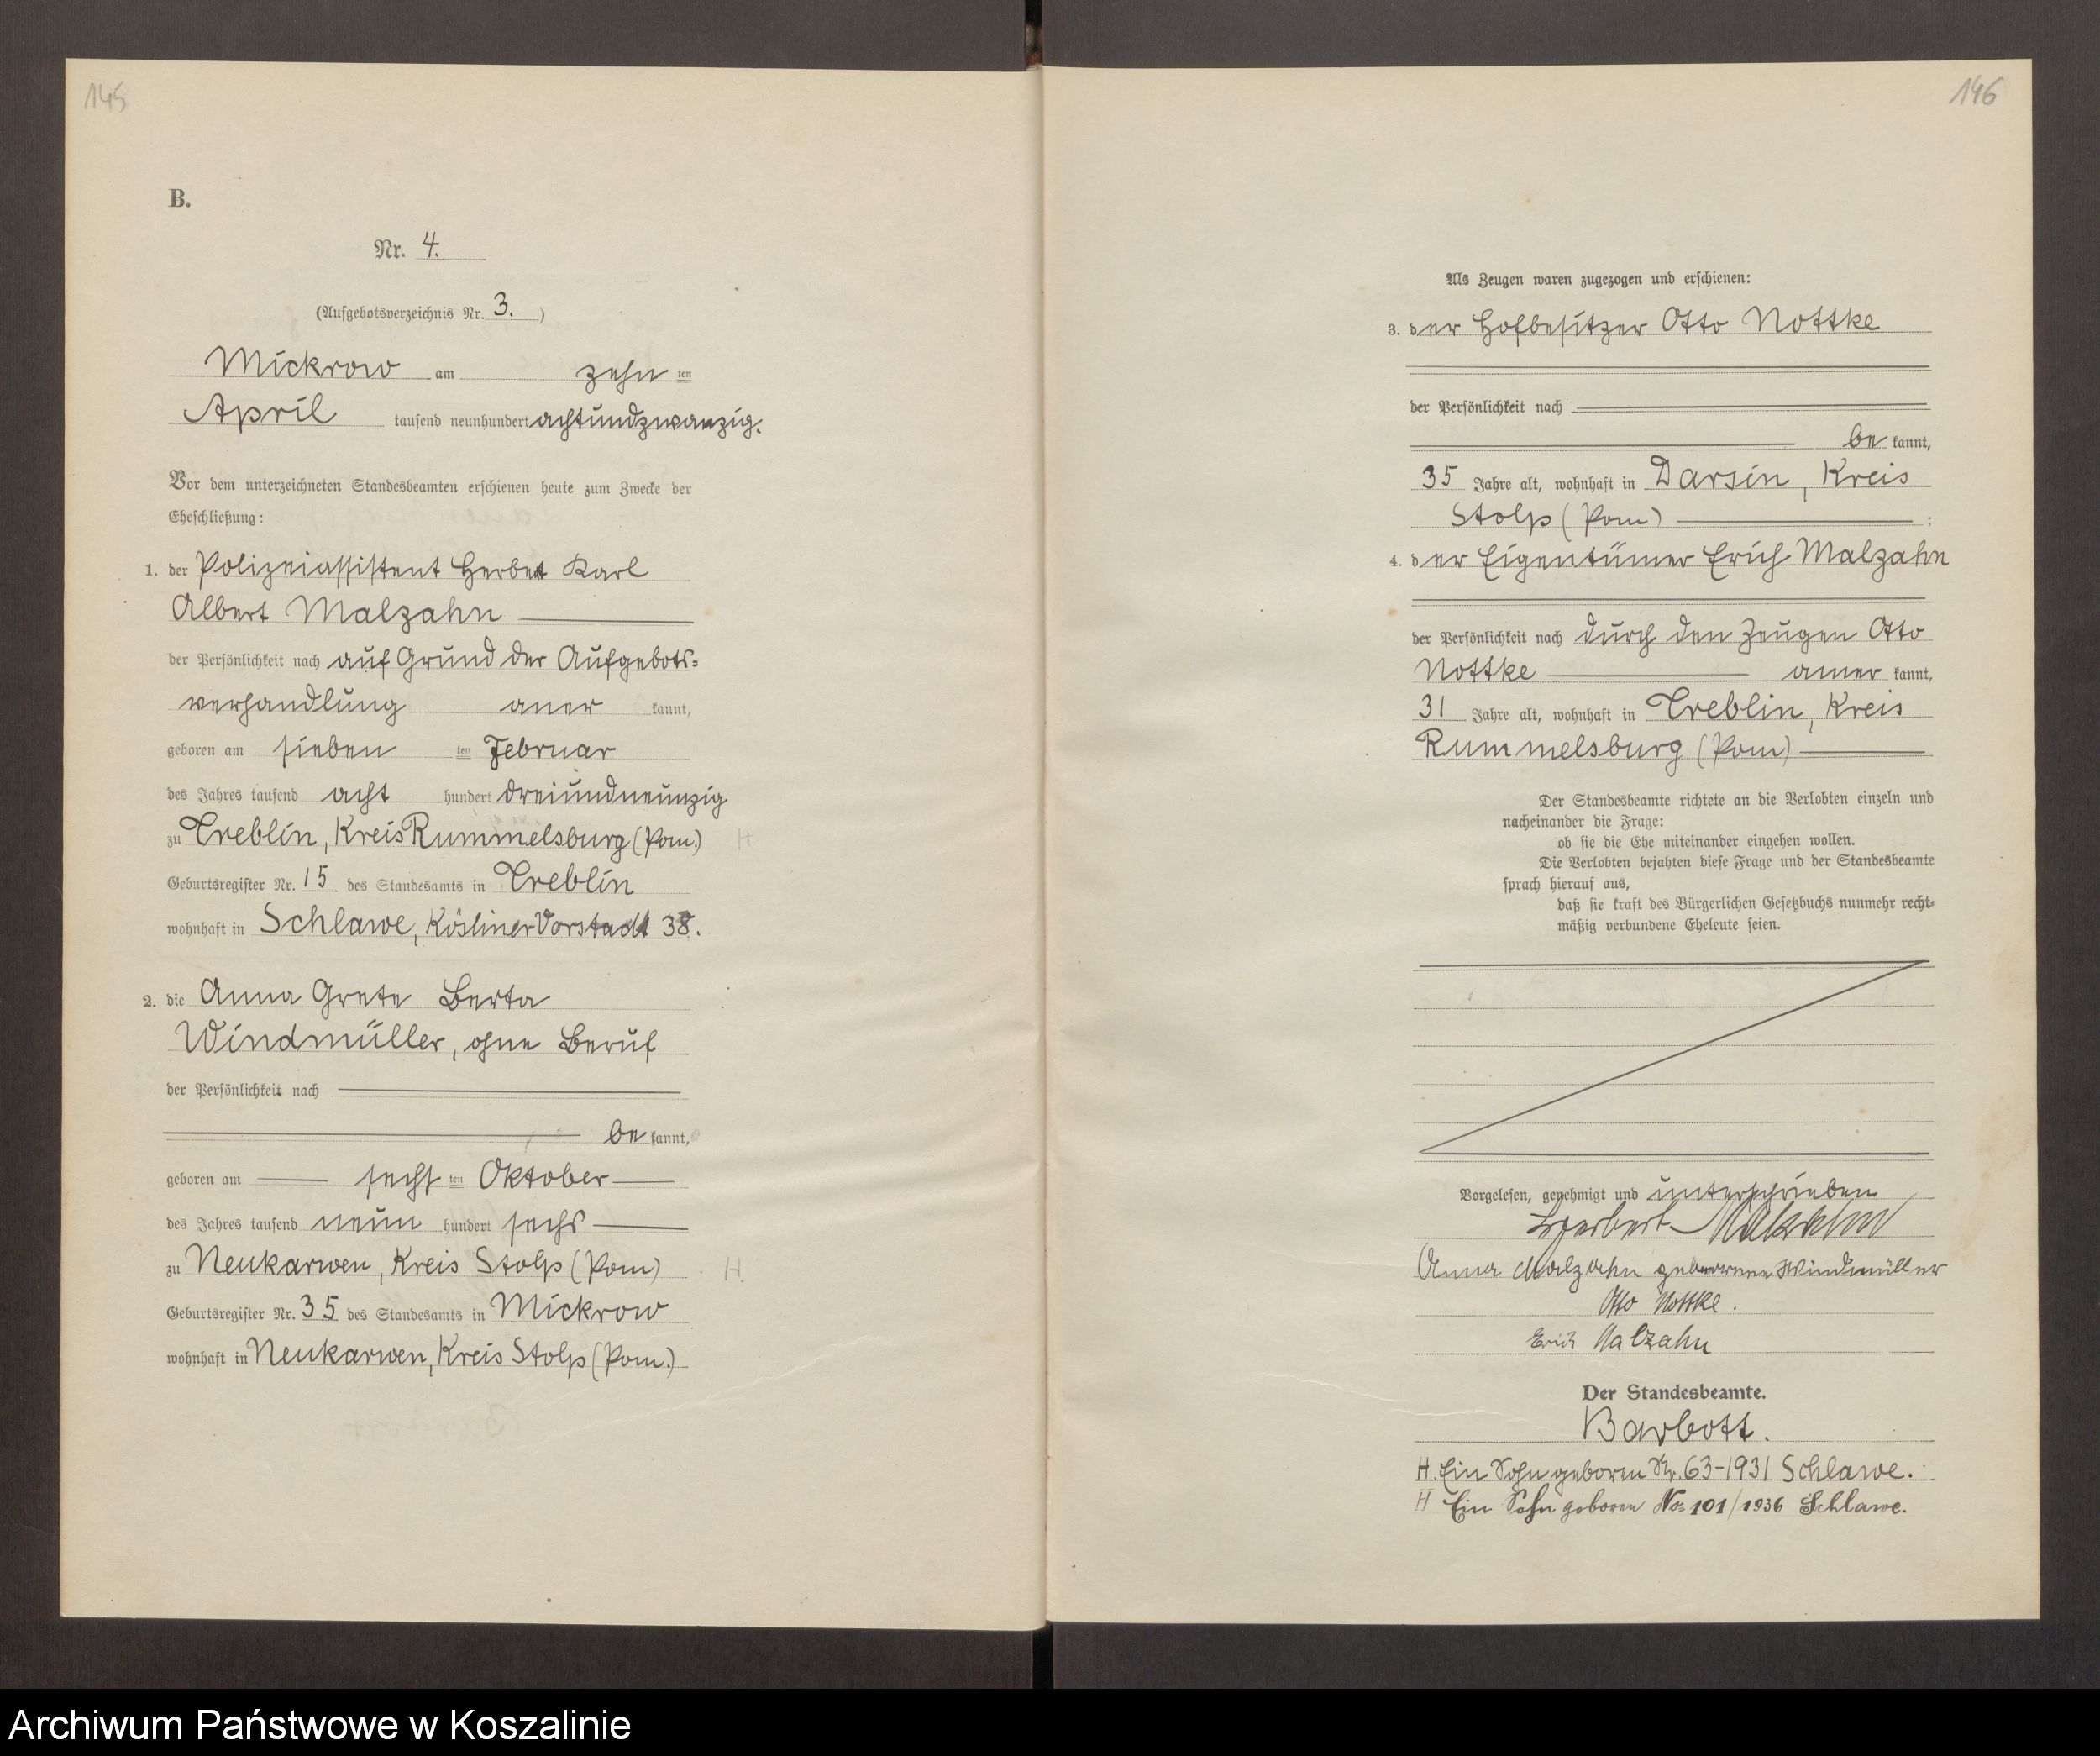 145
B.
Nr. 4.
(Aufgebotsverzeichnis Nr. 3.)
Mickrow am zehn ten
April tausend neunhundert achtundzwanzig.
Vor dem unterzeichneten Standesbeamten erschienen heute zum Zwecke der
Eheschließung:
1. der Polizeiassistent Herbert Karl
Albert Malzahn
der Persönlichkeit nach auf Grund der Aufgebots=
verhandlung aner kannt,
geboren am sieben ten Februar
des Jahres tausend acht hundert dreiundneunzig
zu Treblin, Kreis Rummelsburg (Pom.) H
Geburtsregister Nr. 15 des Standesamts in Treblin
wohnhaft in Schlawe, Kösliner Vorstadt 38.
2. die Anna Grete Berta
Windmüller, ohne Beruf
der Persönlichkeit nach
be kannt,
geboren am sechs ten Oktober
des Jahres tausend neun hundert sechs
zu Neukarwen, Kreis Stolp (Pom) H.
Geburtsregister Nr. 35 des Standesamts in Mickrow
wohnhaft in Neukarwen, Kreis Stolp (Pom.)
146
Als Zeugen waren zugezogen und erschienen:
3. der Hofbesitzer Otto Nottke
der Persönlichkeit nach
be kannt,
35 Jahre alt, wohnhaft in Darsin, Kreis
Stolp (Pom) ;
4. der Eigentümer Erich Malzahn
der Persönlichkeit nach durch den Zeugen Otto
Nottke aner kannt,
31 Jahre alt, wohnhaft in Treblin, Kreis
Rummelsburg (Pom)
Der Standesbeamte richtete an die Verlobten einzeln und
nacheinander die Frage:
ob sie die Ehe miteinander eingehen wollen.
Die Verlobten bejahten diese Frage und der Standesbeamte
sprach hierauf aus,
daß sie kraft des Bürgerlichen Gesetzbuchs nunmehr recht=
mäßig verbundene Eheleute seien.
Vorgelesen, genehmigt und unterschrieben
Herbert Malzahn
Anna Malzahn geborene Windmüller
Otto Nottke.
Erich Malzahn
Der Standesbeamte.
Barbott.
H. Ein Sohn geboren Nr. 63-1931 Schlawe.
H Ein Sohn geboren No= 101/1936 Schlawe.
Archiwum Państwowe w Koszalinie